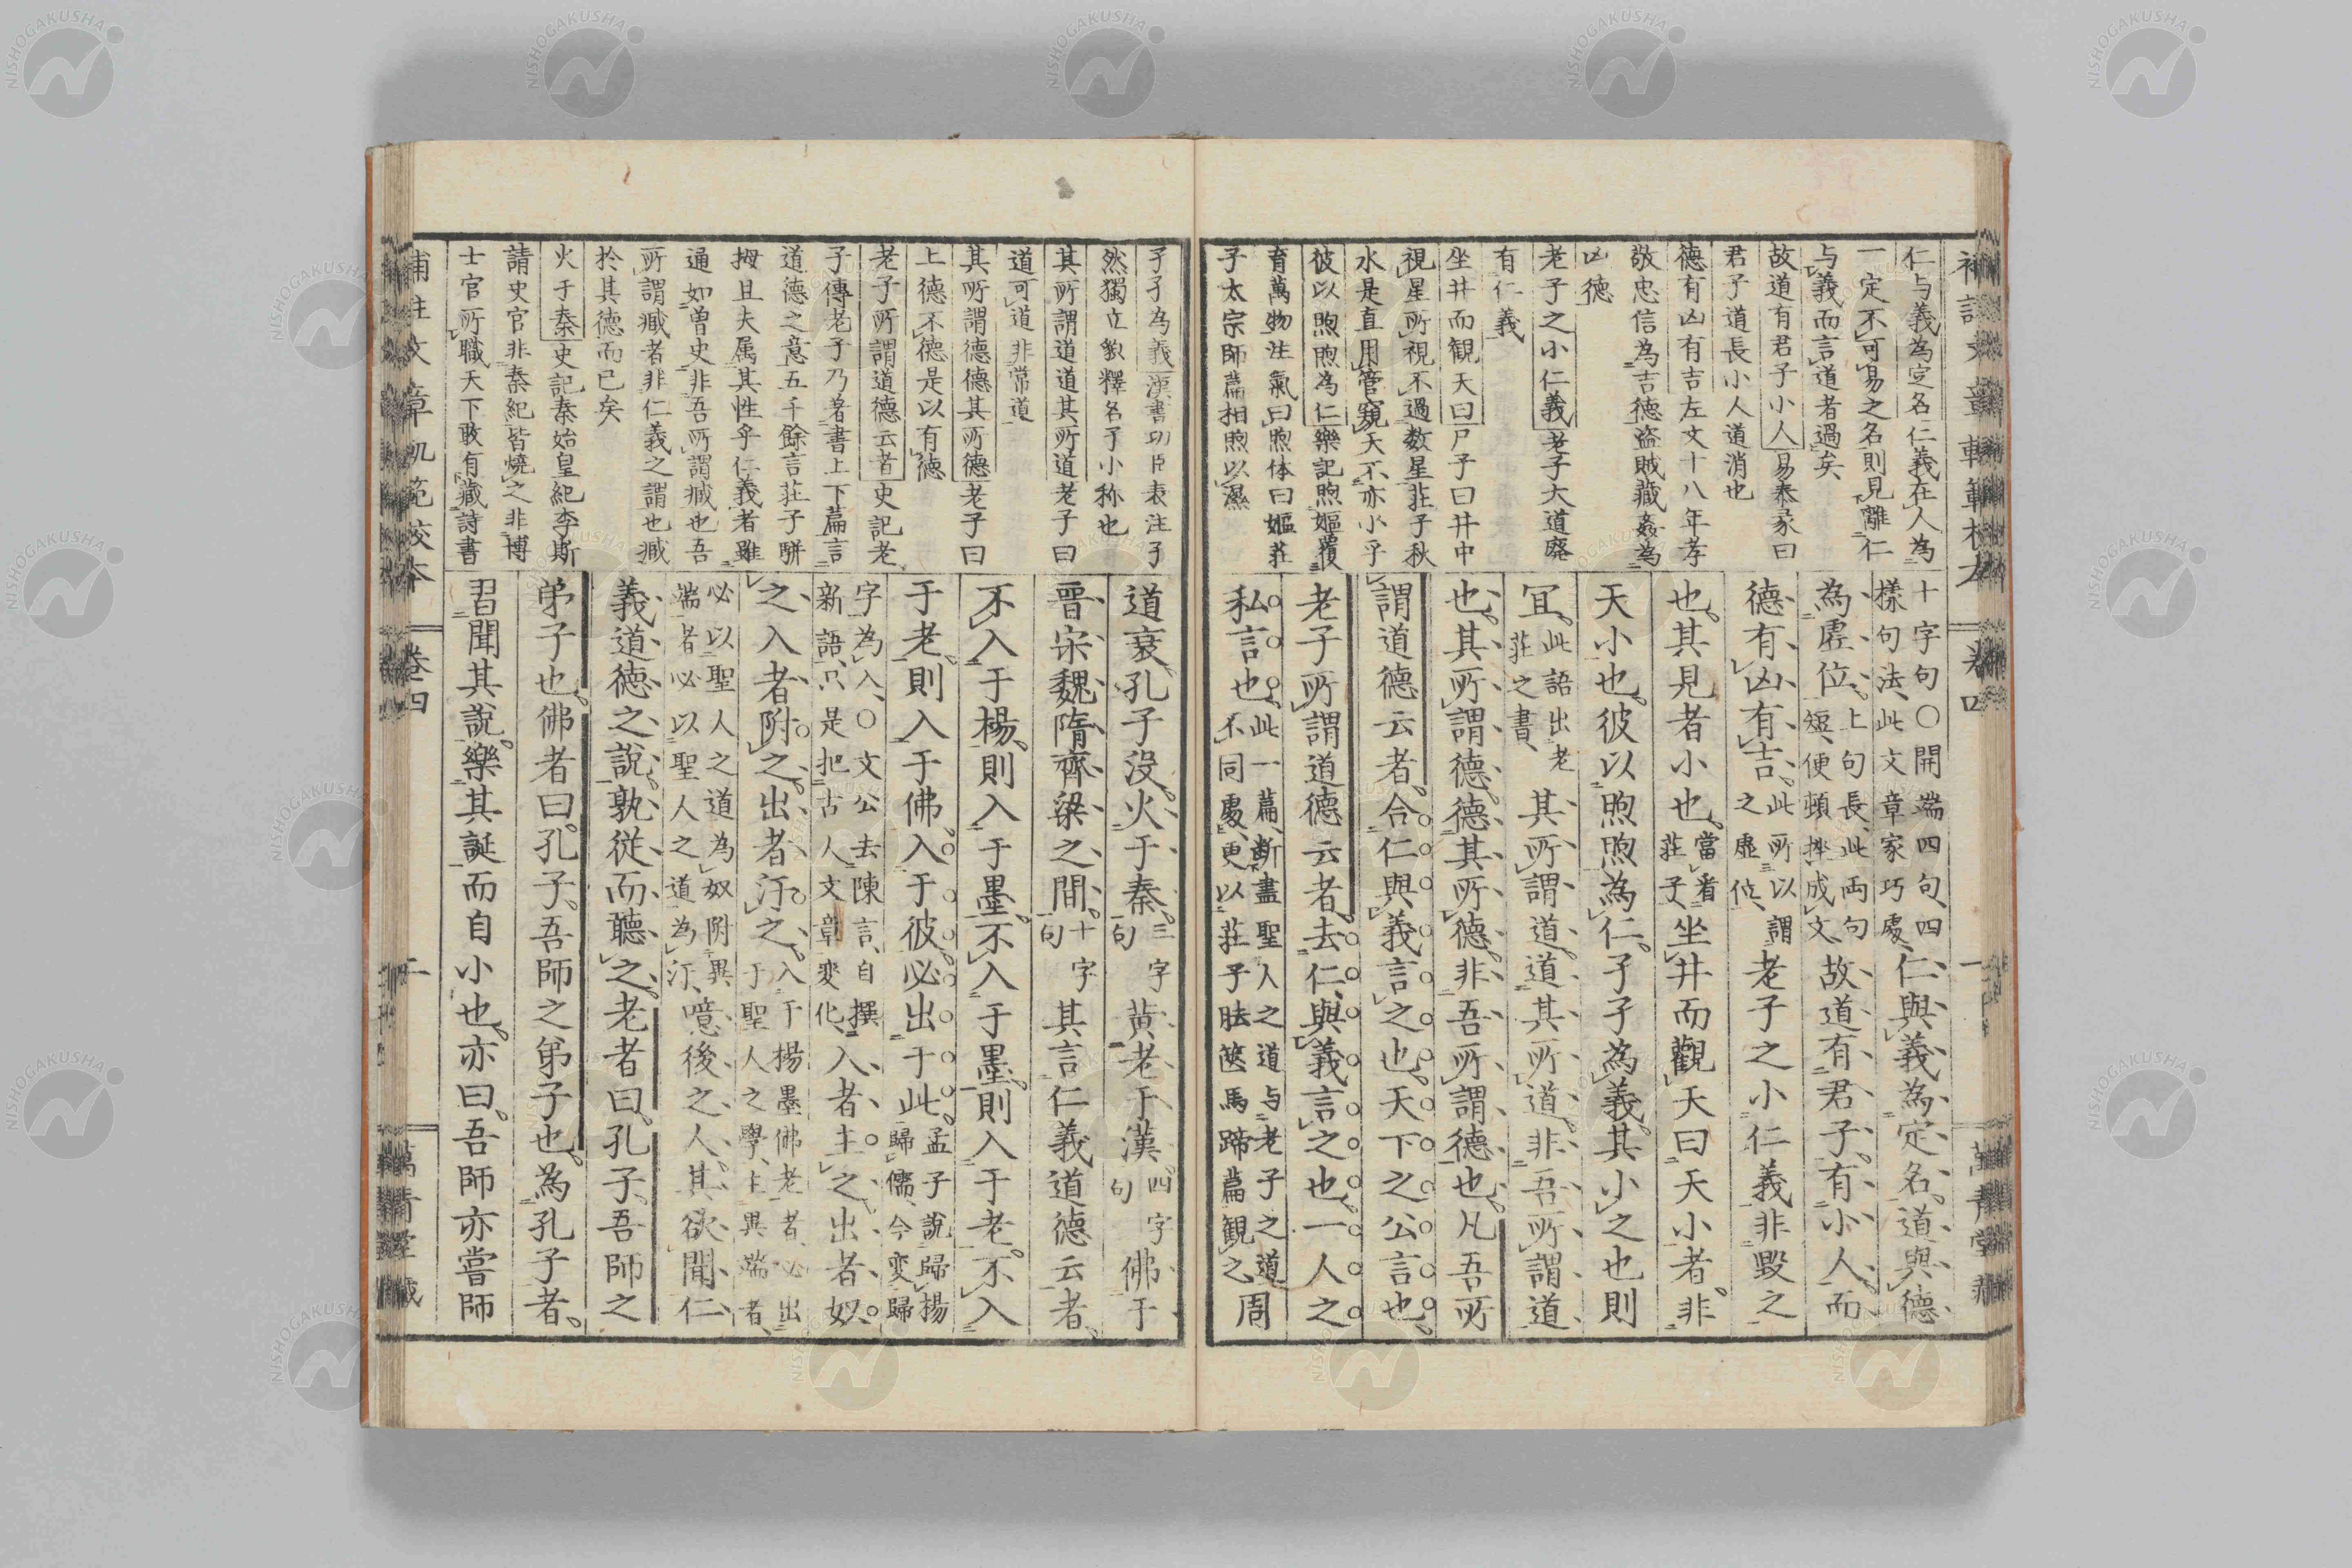 仁与義為定名仁義在人為
一定不可易之名則見離仁
与義而言道者過矣
故道有君子小人易泰彖曰
君子道長小人道消也
德有凶有吉左文十八年孝
敬忠信為吉德盜賊藏姦為
凶德
老子之小仁義老子大道廢
有仁義
坐井而観天曰尸子曰井中
視星所視不過数星莊子秋
水是直用管窺天不亦小乎
彼以煦煦為仁樂記煦嫗覆
育萬物注氣曰煦体曰嫗莊
子太宗師篇相煦以濕
十字句〇開端四句四
樣句法此文章家巧處仁與義為定名道與德
為虛位上句長此両句
短便頓挫成文故道有君子有小人而
德有凶有吉此所以謂
之虛位老子之小仁義非毀之
也其見者小也當看
莊子坐井而觀天曰天小者非
天小也彼以煦煦為仁孑孑為義其小之也則
宜此語出老
莊之書其所謂道道其所道非吾所謂道
也其所謂德德其所德非吾所謂德也凡吾所
謂道德云者合仁與義言之也天下之公言也
老子所謂道德云者去仁與義言之也一人之
私言也此一篇斷盡聖人之道与老子之道
不同處更以莊子胠篋馬蹄篇観之周
孑孑為義漢書功臣表注孑
然獨立皃釋名孑小称也
其所謂道道其所道老子曰
道可道非常道
其所謂德德其所德老子曰
上德不德是以有德
老子所謂道德云者史記老
子傳老子乃著書上下篇言
道德之意五千餘言莊子駢
拇且夫属其性乎仁義者雖
通如曽史非吾所謂臧也吾
所謂臧者非仁義之謂也臧
於其德而已矣
火于秦史記秦始皇紀李斯
請史官非秦紀皆燒之非博
士官所職天下敢有藏詩書
道衰孔子没火于秦三字
句黃老于漢四字
句佛于
晉宋魏隋齊梁之間十字
句其言仁義道德云者
不入于楊則入于墨不入于墨則入于老不入
于老則入于佛入于彼必出于此孟子說歸楊
歸儒今変歸
字為入〇文公去陳言自撰
新語只是把古人文章変化入者主之出者奴
之入者附之出者汙之入于楊墨佛老者必出
于聖人之學主異端者
必以聖人之道為奴附異
端者必以聖人之道為汙噫後之人其欲聞仁
義道德之說孰從而聽之老者曰孔子吾師之
弟子也佛者曰孔子吾師之弟子也為孔子者
習聞其說樂其誕而自小也亦曰吾師亦嘗師